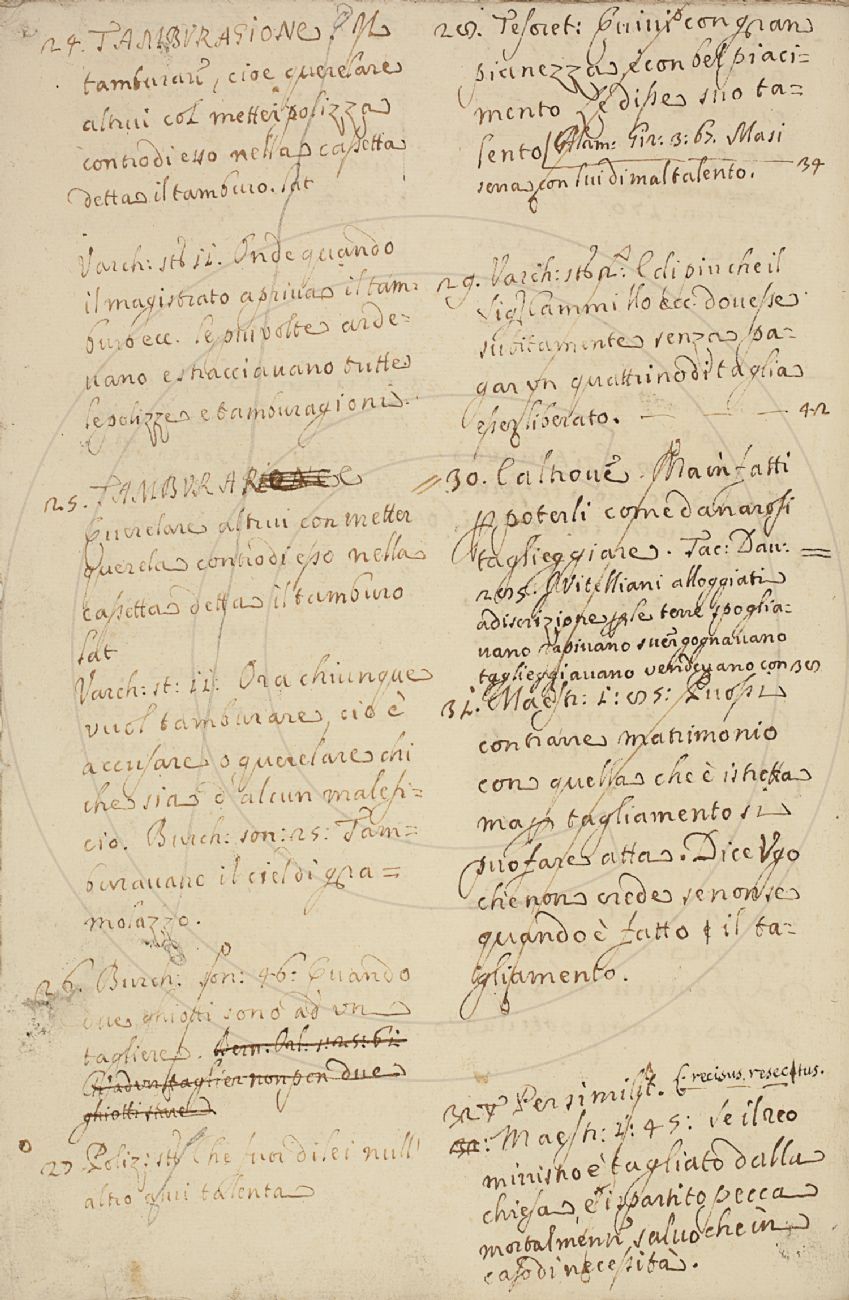 24. TAMBVRAGIONE. Il
tamburarĩ, cioe querelare
altrui col metter polizza
contro di esso nella cassetta
detta il tamburo. lat
Varch: stõ 11. Onde quando
il magistrato apriua il tam-
buro ecc. le piu volte arde-
uano e stracciauano tutte
le polizze e tamburagioni.
25. TAMBVRARE
Querelare altrui con metter
querela contro di esso nella
cassetta detta il tamburo
lat
Varch: st: 11: Ora chiunque
vuol tamburare, cio è
accusare o querelare chi
che sia d'alcun malefi=
cio. Burch: son: 25: Tam-
burauano il ciel di gra=
molazzo.
26. Burch: son: 46: Quando
due ghiotti sono ad vn
tagliere. Bern: Orl: 1: 25: 61
Ch'ad vn taglier non pon due
ghiotti stare
27. Poliz: stõ Che fuor di lei null'
altro qui talenta
28. Tesoret: Quiui con gran
pianezza e con bel piaci-
mento Le disse suo ta=
lento. Alam: Gir: 3: 67. Masi
serra con lui di mal talento. 34
29. Varch: stõ E di piu che il
Sig. Cammillo ecc. douesse
subitamente senza pa-
gar vn quattrino di taglia
esser liberato. 42
30. E altroue. Ma in fatti
p poterli come danarosi
taglieggiare. Tac: Dau:
285. I Vitelliani alloggiati
a discrizione p le terre spoglia-
uano rapiuano suergognauano
taglieggiauano vendeuano con 38
31. Maestr: 1: 85: Puossi
contrarre matrimonio
con quella che è istretta
ma p tagliamento si
puo fare atta. Dice Vgo
che non crede se non se
quando è fatto il ta-
gliamento.
32 Per similit. Precisus, resectus.
Maestr: 2: 45: Se il reo
ministro è tagliato dalla
chiesa, e ispartito pecca
mortalmente, saluo che in
caso di necessità.